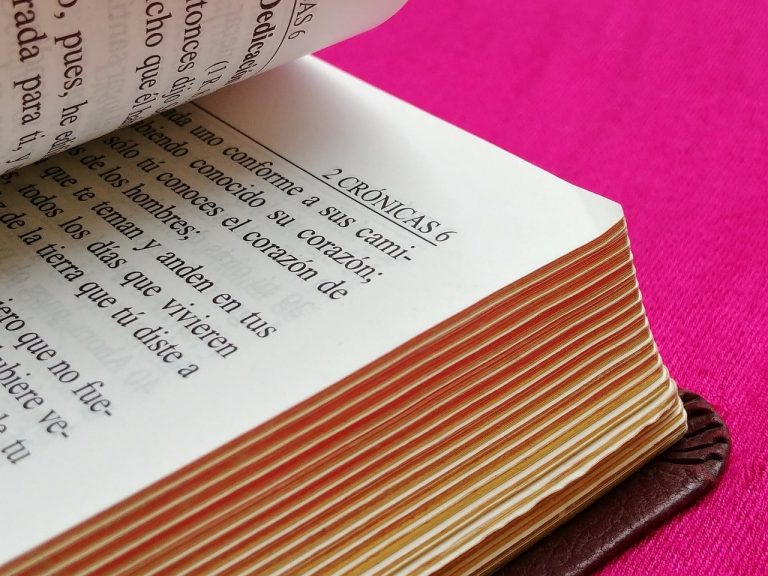 AS 6
Dedicación
(1 R.
ntonces dijo
cho que él
, pues, he
rada para ti, y
2 CRÓNICAS 6
uno conforme a sus cami-
biendo conocido su corazón;
sólo tú conoces el corazón de
s de los hombres;
que te teman y anden en tus
todos los días que vivieren
z de la tierra que tú diste a
ero que no fue-
ubiere ve-
tu